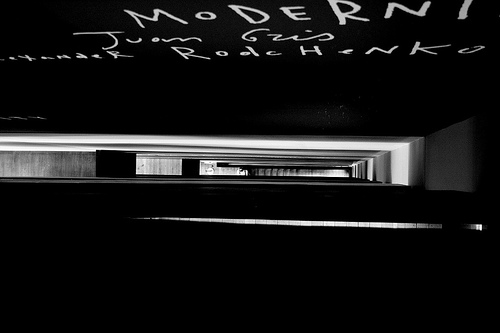 MODERN
Juan Gris
Alexander RodcHENKO